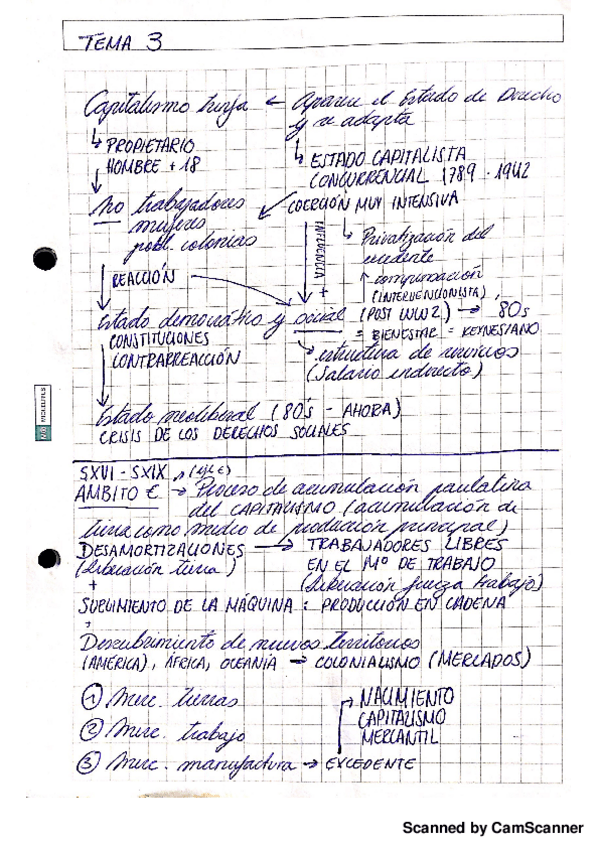 TEMA 3
Capitalismo surja ← Aparece el Estado de Derecho
y se adapta
↳ PROPIETARIO
HOMBRE + 18
↳ ESTADO CAPITALISTA
CONCURRENCIAL 1789 - 1942
COERCIÓN MUY INTENSIVA
no trabajadores
mujeres
pobl. colonias
INFLUENCIA +
↳ Privatización del
excedente
↑ compensación
(INTERVENCIONISTA)
REACCIÓN
Estado democrático y social (POST WW2) → 80s
= BIENESTAR = KEYNESIANO
CONSTITUCIONES
CONTRARREACCIÓN
→ estructura de servicios
(Salario indirecto)
Estado neoliberal (80's - AHORA)
CRISIS DE LOS DERECHOS SOCIALES
SXVI - SXIX
ÁMBITO € → Proceso de acumulación paulatina
del CAPITALISMO (acumulación de
tierra como medio de producción principal)
DESAMORTIZACIONES → TRABAJADORES LIBRES
(Liberación tierra) EN EL Mº DE TRABAJO
+ (Liberación fuerza trabajo)
SURGIMIENTO DE LA MÁQUINA : PRODUCCIÓN EN CADENA
Descubrimiento de nuevos territorios
(AMÉRICA), ÁFRICA, OCEANÍA → COLONIALISMO (MERCADOS)
① Merc. tierras
② Merc. trabajo
③ Merc. manufactura → EXCEDENTE
→ NACIMIENTO
CAPITALISMO
MERCANTIL
Scanned by CamScanner